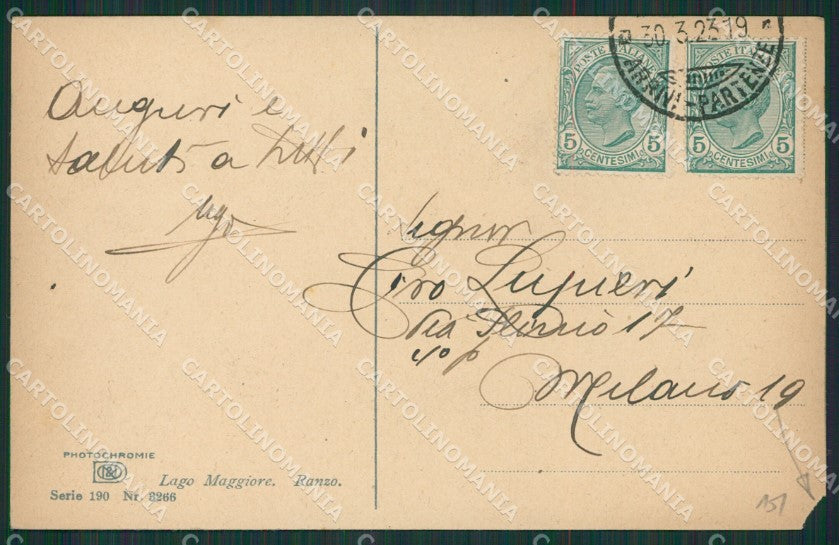 Auguri e
saluti a tutti
Ugo
POSTE ITALIANE
5 CENTESIMI 5
POSTE ITALIANE
5 CENTESIMI 5
30.3.23 19
ARRIVI-PARTENZE
Signor
Ciro Lupieri
Via Plinio 17
Milano 19
PHOTOCHROMIE
Lago Maggiore. Ranzo.
Serie 190 Nr. 8266
151
CARTOLINOMANIA